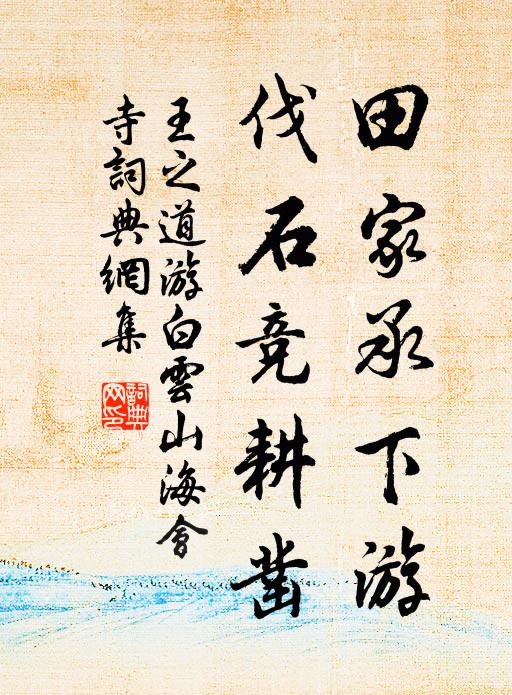 田家承下游
伐石竞耕凿
王之道游白雲山海會
寺詞典網集
詞典網印